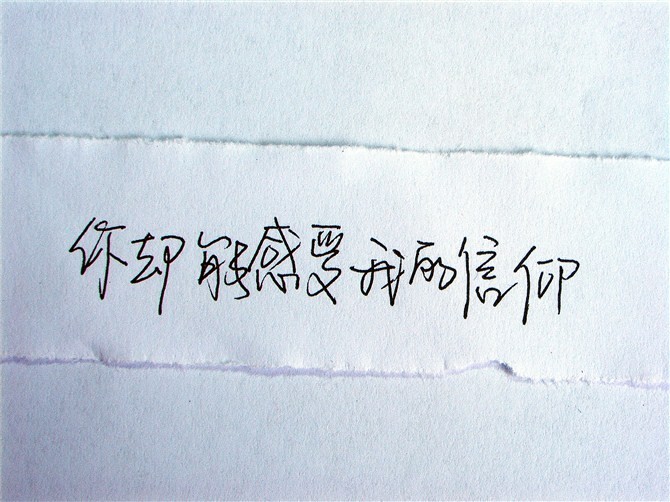 你却能感受我的信仰